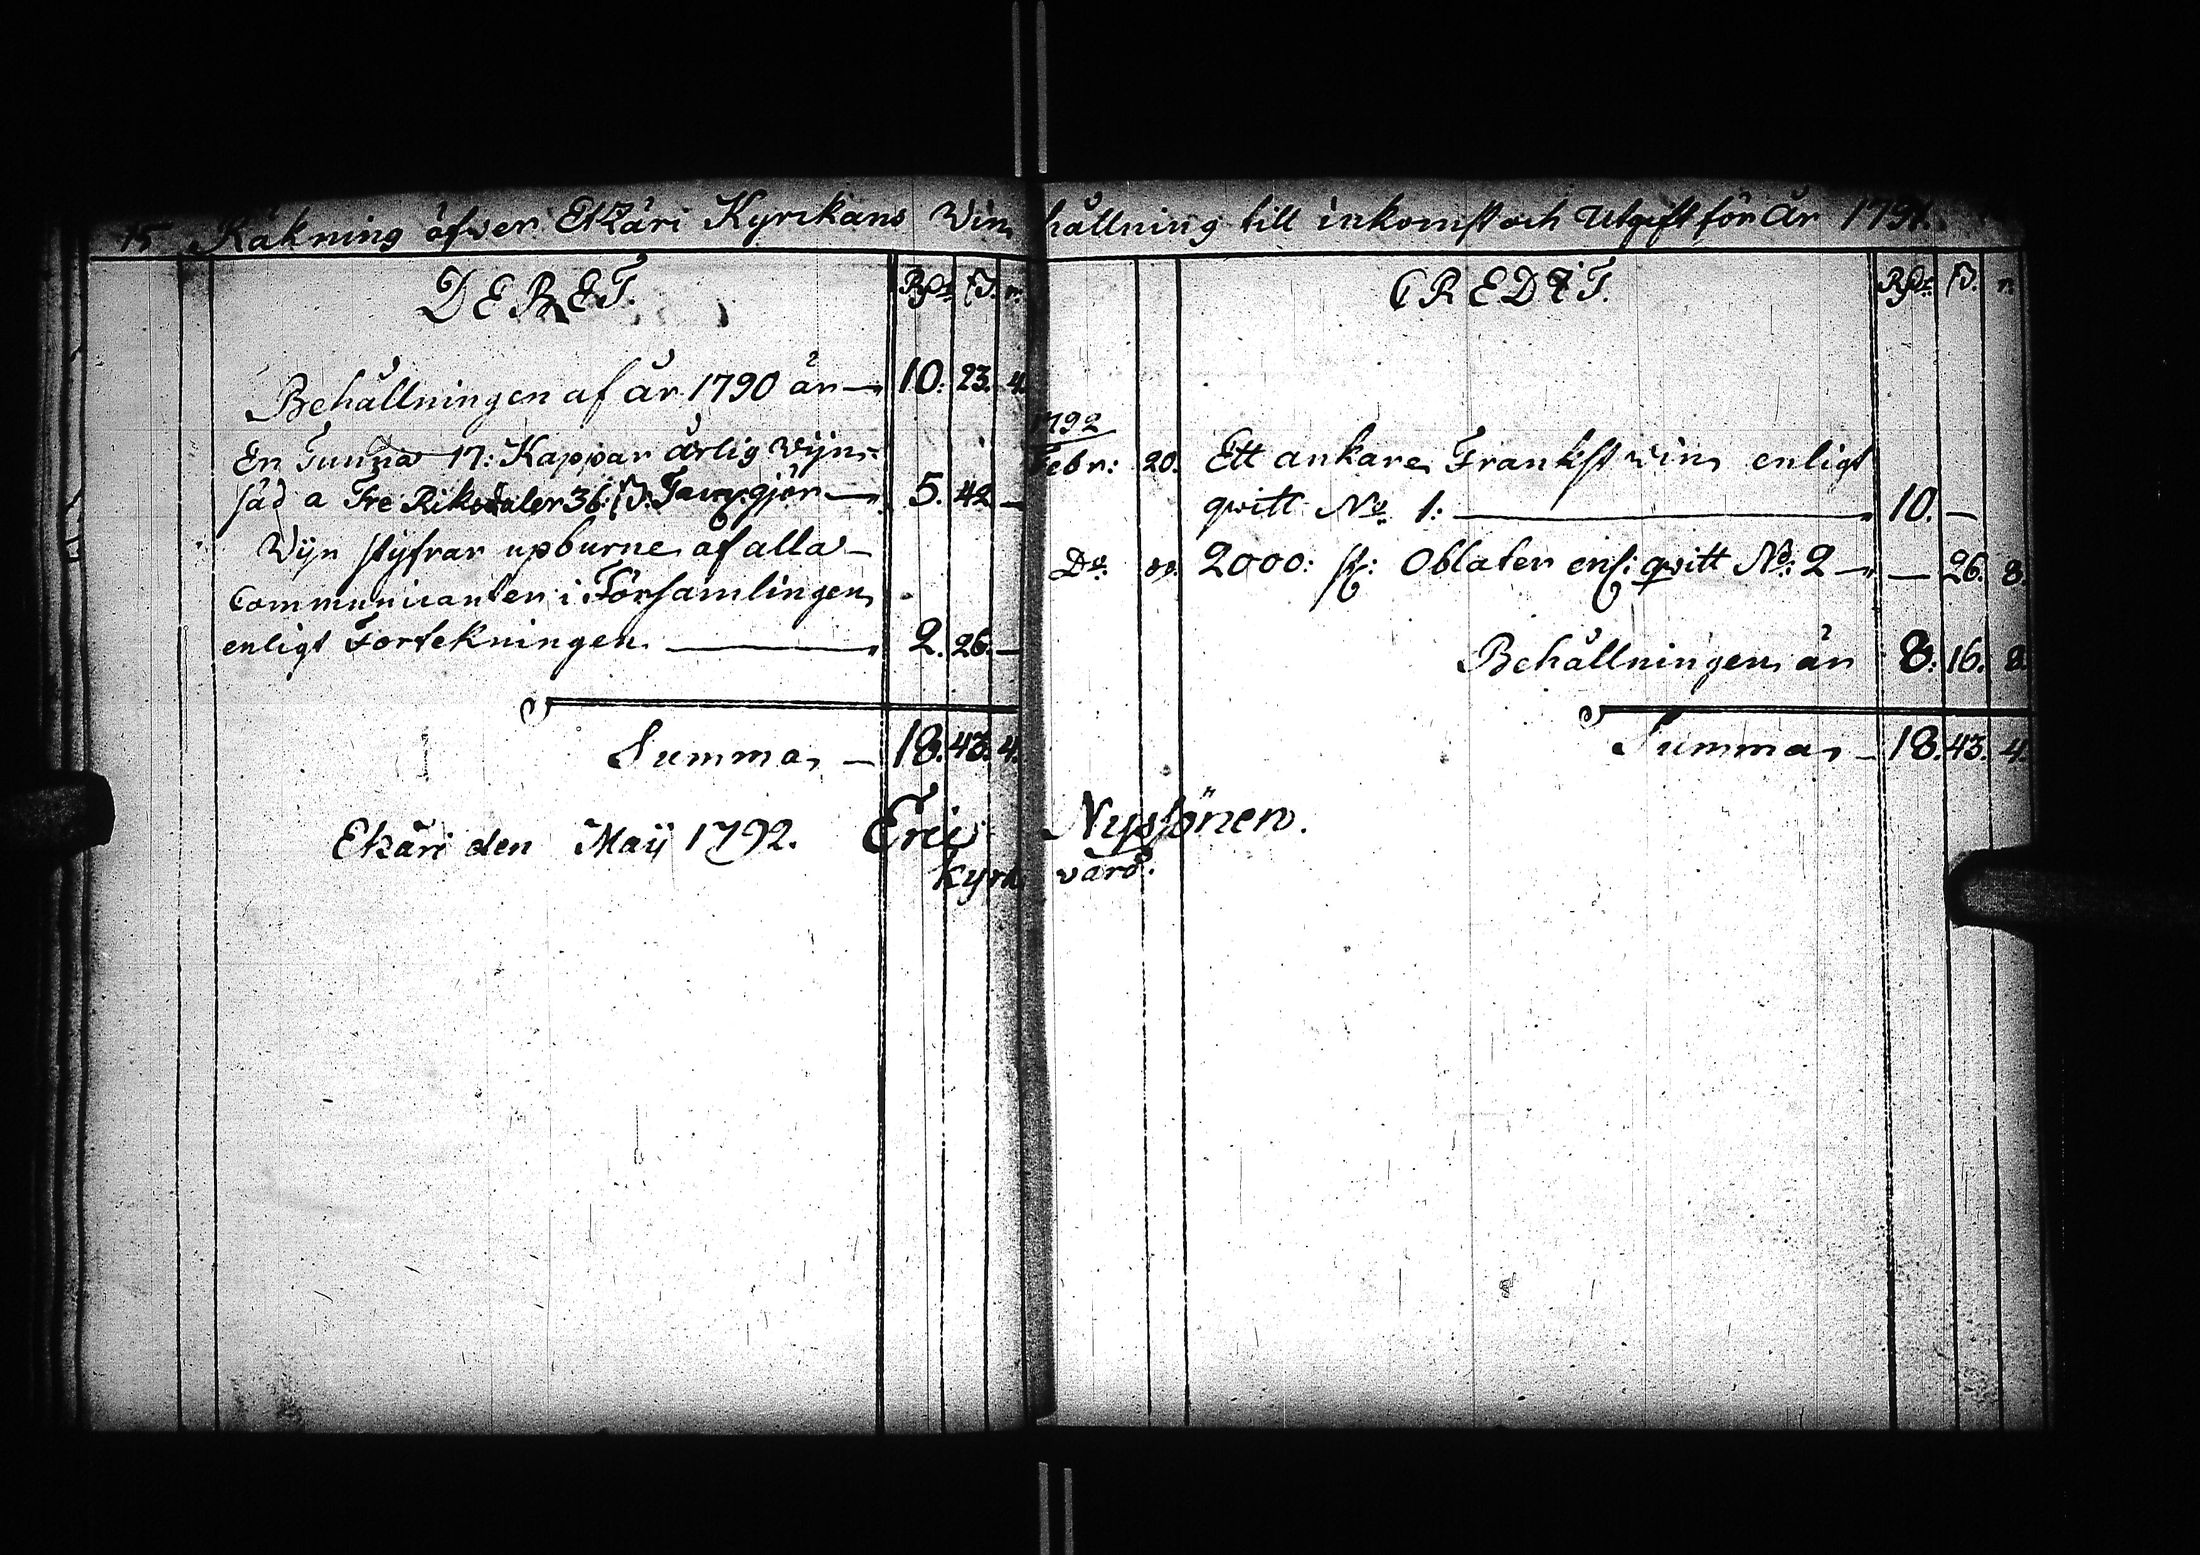 15 Räkning öfver Etzäri Kyrckans Vin hållning till inkomst och Utgift för År 1791.
DEBET. Rdr ß. r.
Behållningen af år 1790 är — 10. 23. 4.
En Tunna 17: Kappar årlig Wijn
säd a Tre Riksdaler 36. ß. gjör — 5. 42 —
Wijn styfrar upburne af alla
Communicanter i Församlingen
enligt Fortekningen — 2. 26. —
Summa — 18. 43. 4.
CREDIT. Rdr ß. r.
1792
Febr: 20. Ett ankare Franskt vin enligt
qvitt No. 1: — 10. —
Do. do. 2000: st: Oblater enl: qvitt No: 2 — — 26. 8.
Behållningen är 8. 16. 8.
Summa — 18. 43. 4.
Etzäri den Maij 1792. Eric Nyssönen.
Kyrk värd.